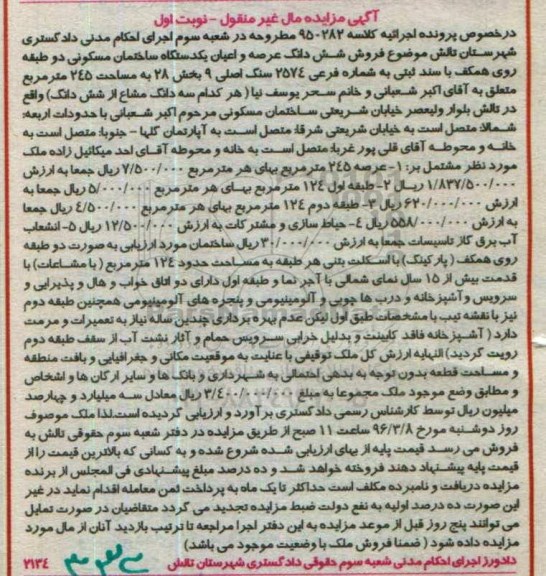 آگهی مزایده مال غیر منقول - نوبت اول
درخصوص پرونده اجرائیه کلاسه ۹۵۰۲۸۲ مطروحه در شعبه سوم اجرای احکام مدنی دادگستری
شهرستان تالش موضوع فروش شش دانگ عرصه و اعیان یکدستگاه ساختمان مسکونی دو طبقه
روی همکف با سند ثبتی به شماره فرعی ۲۵۷۴ سنگ اصلی ۹ بخش ۲۸ به مساحت ۲۴۵ مترمربع
متعلق به آقای اکبر شعبانی و خانم سحر یوسف نیا (هر کدام سه دانگ مشاع از شش دانگ) واقع
در تالش بلوار ولیعصر خیابان شریعتی ساختمان مسکونی مرحوم اکبر شعبانی با حدودات اربعه:
شمالا: متصل است به خیابان شریعتی شرقا: متصل است به آپارتمان گلها - جنوبا: متصل است به
خانه و محوطه آقای قلی پور غربا: متصل است به خانه و محوطه آقای احد میکائیل زاده ملک
مورد نظر مشتمل بر: ۱- عرصه ۲۴۵ مترمربع بهای هر مترمربع ۷/۵۰۰/۰۰۰ ریال جمعا به ارزش
۱/۸۳۷/۵۰۰/۰۰۰ ریال ۲- طبقه اول ۱۲۴ مترمربع بهای هر مترمربع ۵/۰۰۰/۰۰۰ ریال جمعا به
ارزش ۶۲۰/۰۰۰/۰۰۰ ریال ۳- طبقه دوم ۱۲۴ مترمربع بهای هر مترمربع ۴/۵۰۰/۰۰۰ ریال جمعا
به ارزش ۵۵۸/۰۰۰/۰۰۰ ریال ۴- حیاط سازی و مشترکات به ارزش ۱۲/۵۰۰/۰۰۰ ریال ۵- انشعاب
آب برق گاز تاسیسات جمعا به ارزش ۳۰/۰۰۰/۰۰۰ ریال ساختمان مورد ارزیابی به صورت دو طبقه
روی همکف (پارکینگ) با اسکلت بتنی هر طبقه به مساحت حدود ۱۲۴ مترمربع (با مشاعات) با
قدمت بیش از ۱۵ سال نمای شمالی با آجر نما و طبقه اول دارای دو اتاق خواب و هال و پذیرایی و
سرویس و آشپزخانه و درب ها چوبی و آلومینیومی و پنجره های آلومینیومی همچنین طبقه دوم
نیز با نقشه تیپ با مشخصات طبق اول لیکن عدم بهره برداری چندین ساله نیاز به تعمیرات و مرمت
دارد (آشپزخانه فاقد کابینت و بدلیل خرابی سرویس حمام و آثار نشت آب از سقف طبقه دوم
رویت گردید) النهایه ارزش کل ملک توقیفی با عنایت به موقعیت مکانی و جغرافیایی و بافت منطقه
و مساحت قطعه بدون توجه به بدهی احتمالی به شهرداری و بانک ها و سایر ارکان ها و اشخاص
و مطابق وضع موجود ملک مجموعا به مبلغ ۳/۴۰۰/۰۰۰/۰۰۰ ریال معادل سه میلیارد و چهارصد
میلیون ریال توسط کارشناس رسمی دادگستری برآورد و ارزیابی گردیده است. لذا ملک موصوف
روز دوشنبه مورخ ۹۶/۳/۸ ساعت ۱۱ صبح از طریق مزایده در دفتر شعبه سوم حقوقی تالش به
فروش می رسد قیمت پایه از بهای ارزیابی شده شروع شده و به کسانی که بالاترین قیمت را از
قیمت پایه پیشنهاد دهند فروخته خواهد شد و ده درصد مبلغ پیشنهادی فی المجلس از برنده
مزایده دریافت و نامبرده مکلف است حداکثر تا یک ماه به پرداخت ثمن معامله اقدام نماید در غیر
این صورت ده درصد اولیه به نفع دولت ضبط مزایده تجدید می گردد متقاضیان در صورت تمایل
می توانند پنج روز قبل از موعد مزایده به این دفتر اجرا مراجعه تا ترتیب بازدید آنان از مال مورد
مزایده داده شود (ضمنا فروش ملک با وضعیت موجود می باشد)
دادورز اجرای احکام مدنی شعبه سوم حقوقی دادگستری شهرستان تالش ۲۱۳۴